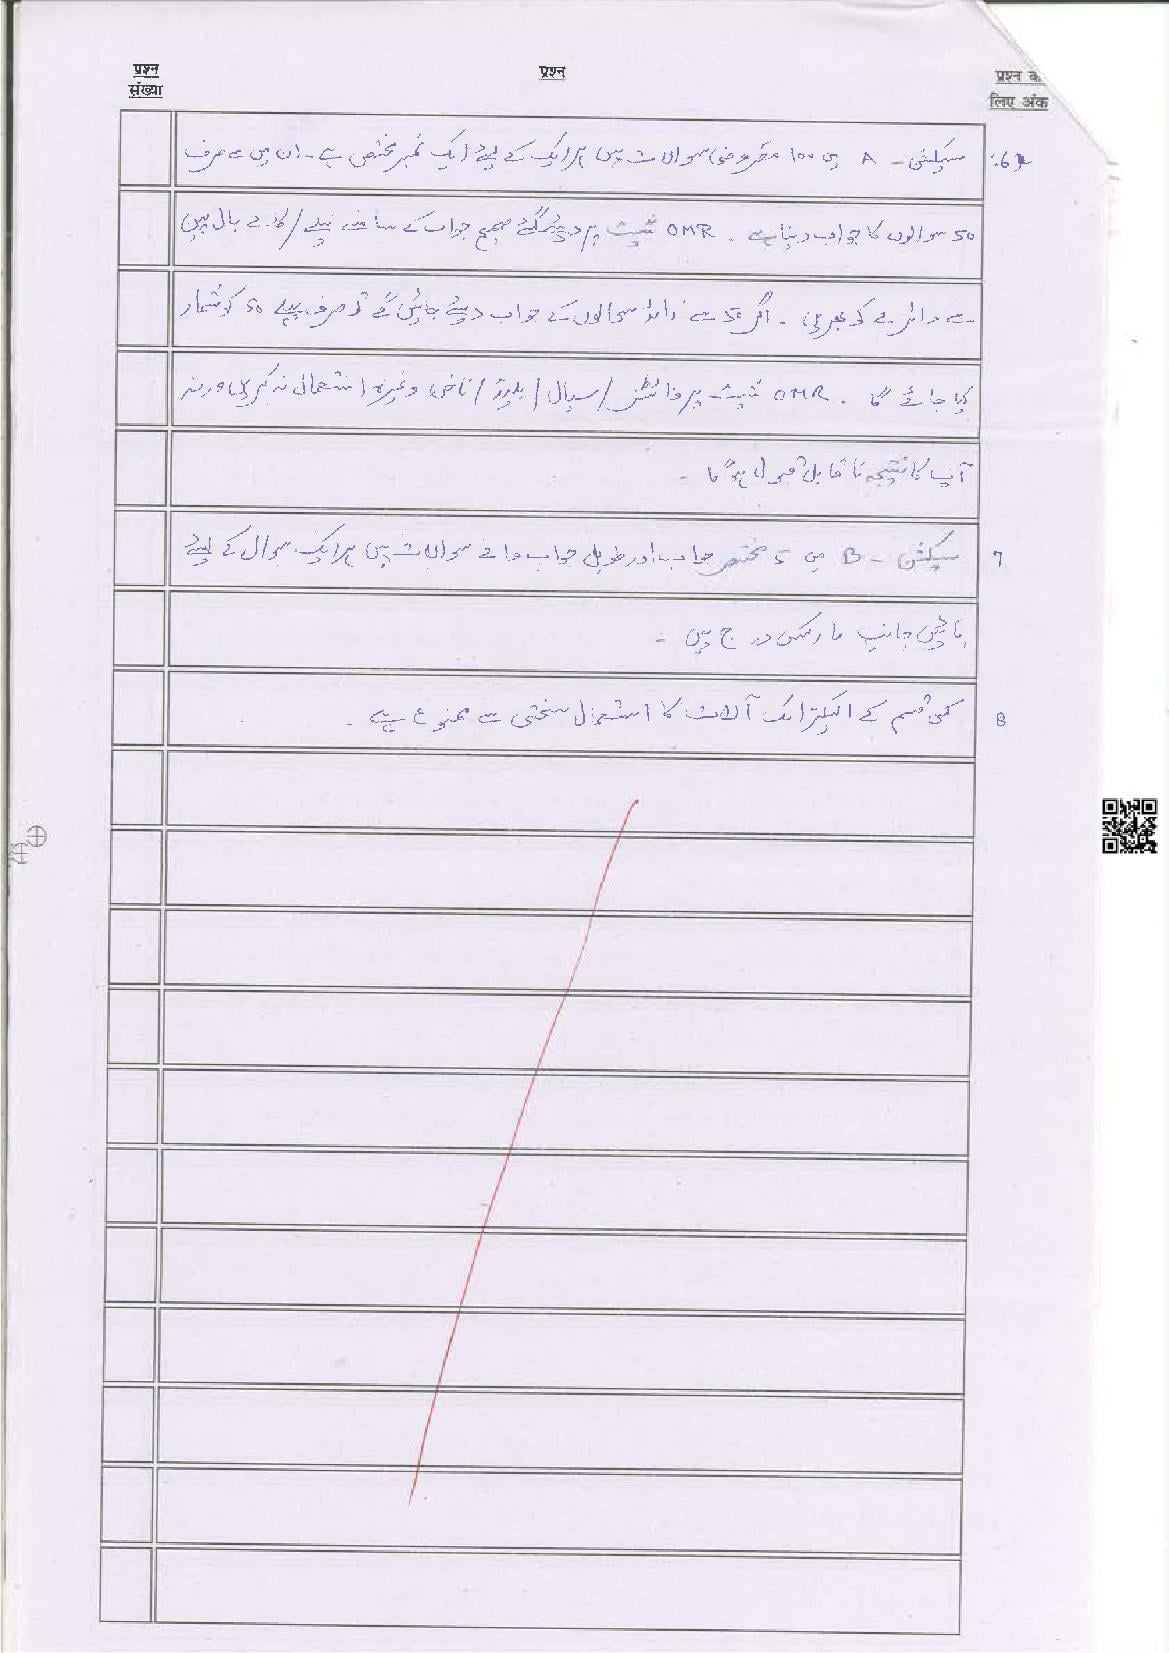 प्रश्न संख्या
प्रश्न
प्रश्न के लिए अंक
6 سیکشن - A میں 100 معروضی سوالات ہیں ہر ایک کے لیئے ایک نمبر مختص ہے - ان میں سے صرف
50 سوالوں کا جواب دینا ہے - OMR شیٹ پر دیئے گئے صحیح جواب کے سامنے نیلے / کالے بال پین
سے دائرے کو بھریں - اگر 50 سے زائد سوالوں کے جواب دیئے جائیں گے تو صرف پہلے 50 کو شمار
کیا جائے گا - OMR شیٹ پر وائٹنر / سیال / بلیڈ / ناخن وغیرہ استعمال نہ کریں ورنہ
آپ کا نتیجہ ناقابل قبول ہوگا -
7 سیکشن - B میں 5 مختصر جواب اور طویل جواب والے سوالات ہیں ہر ایک سوال کے لیئے
بائیں جانب مارکس درج ہیں -
8 کسی قسم کے الیکٹرانک آلات کا استعمال سختی سے ممنوع ہے -